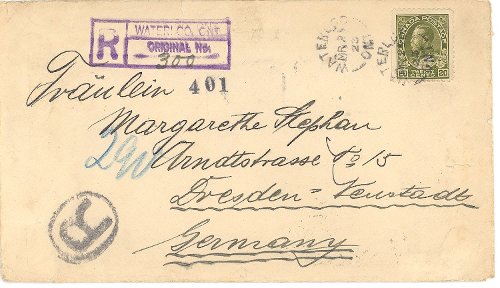 R
WATERLOO, ONT.
ORIGINAL No.
300
401
WATERLOO
ONT
CANADA POSTAGE
20 20
Fräulein
Margarethe Stephan
Arndtstrasse No 15
Dresden-Neustadt
Germany
R